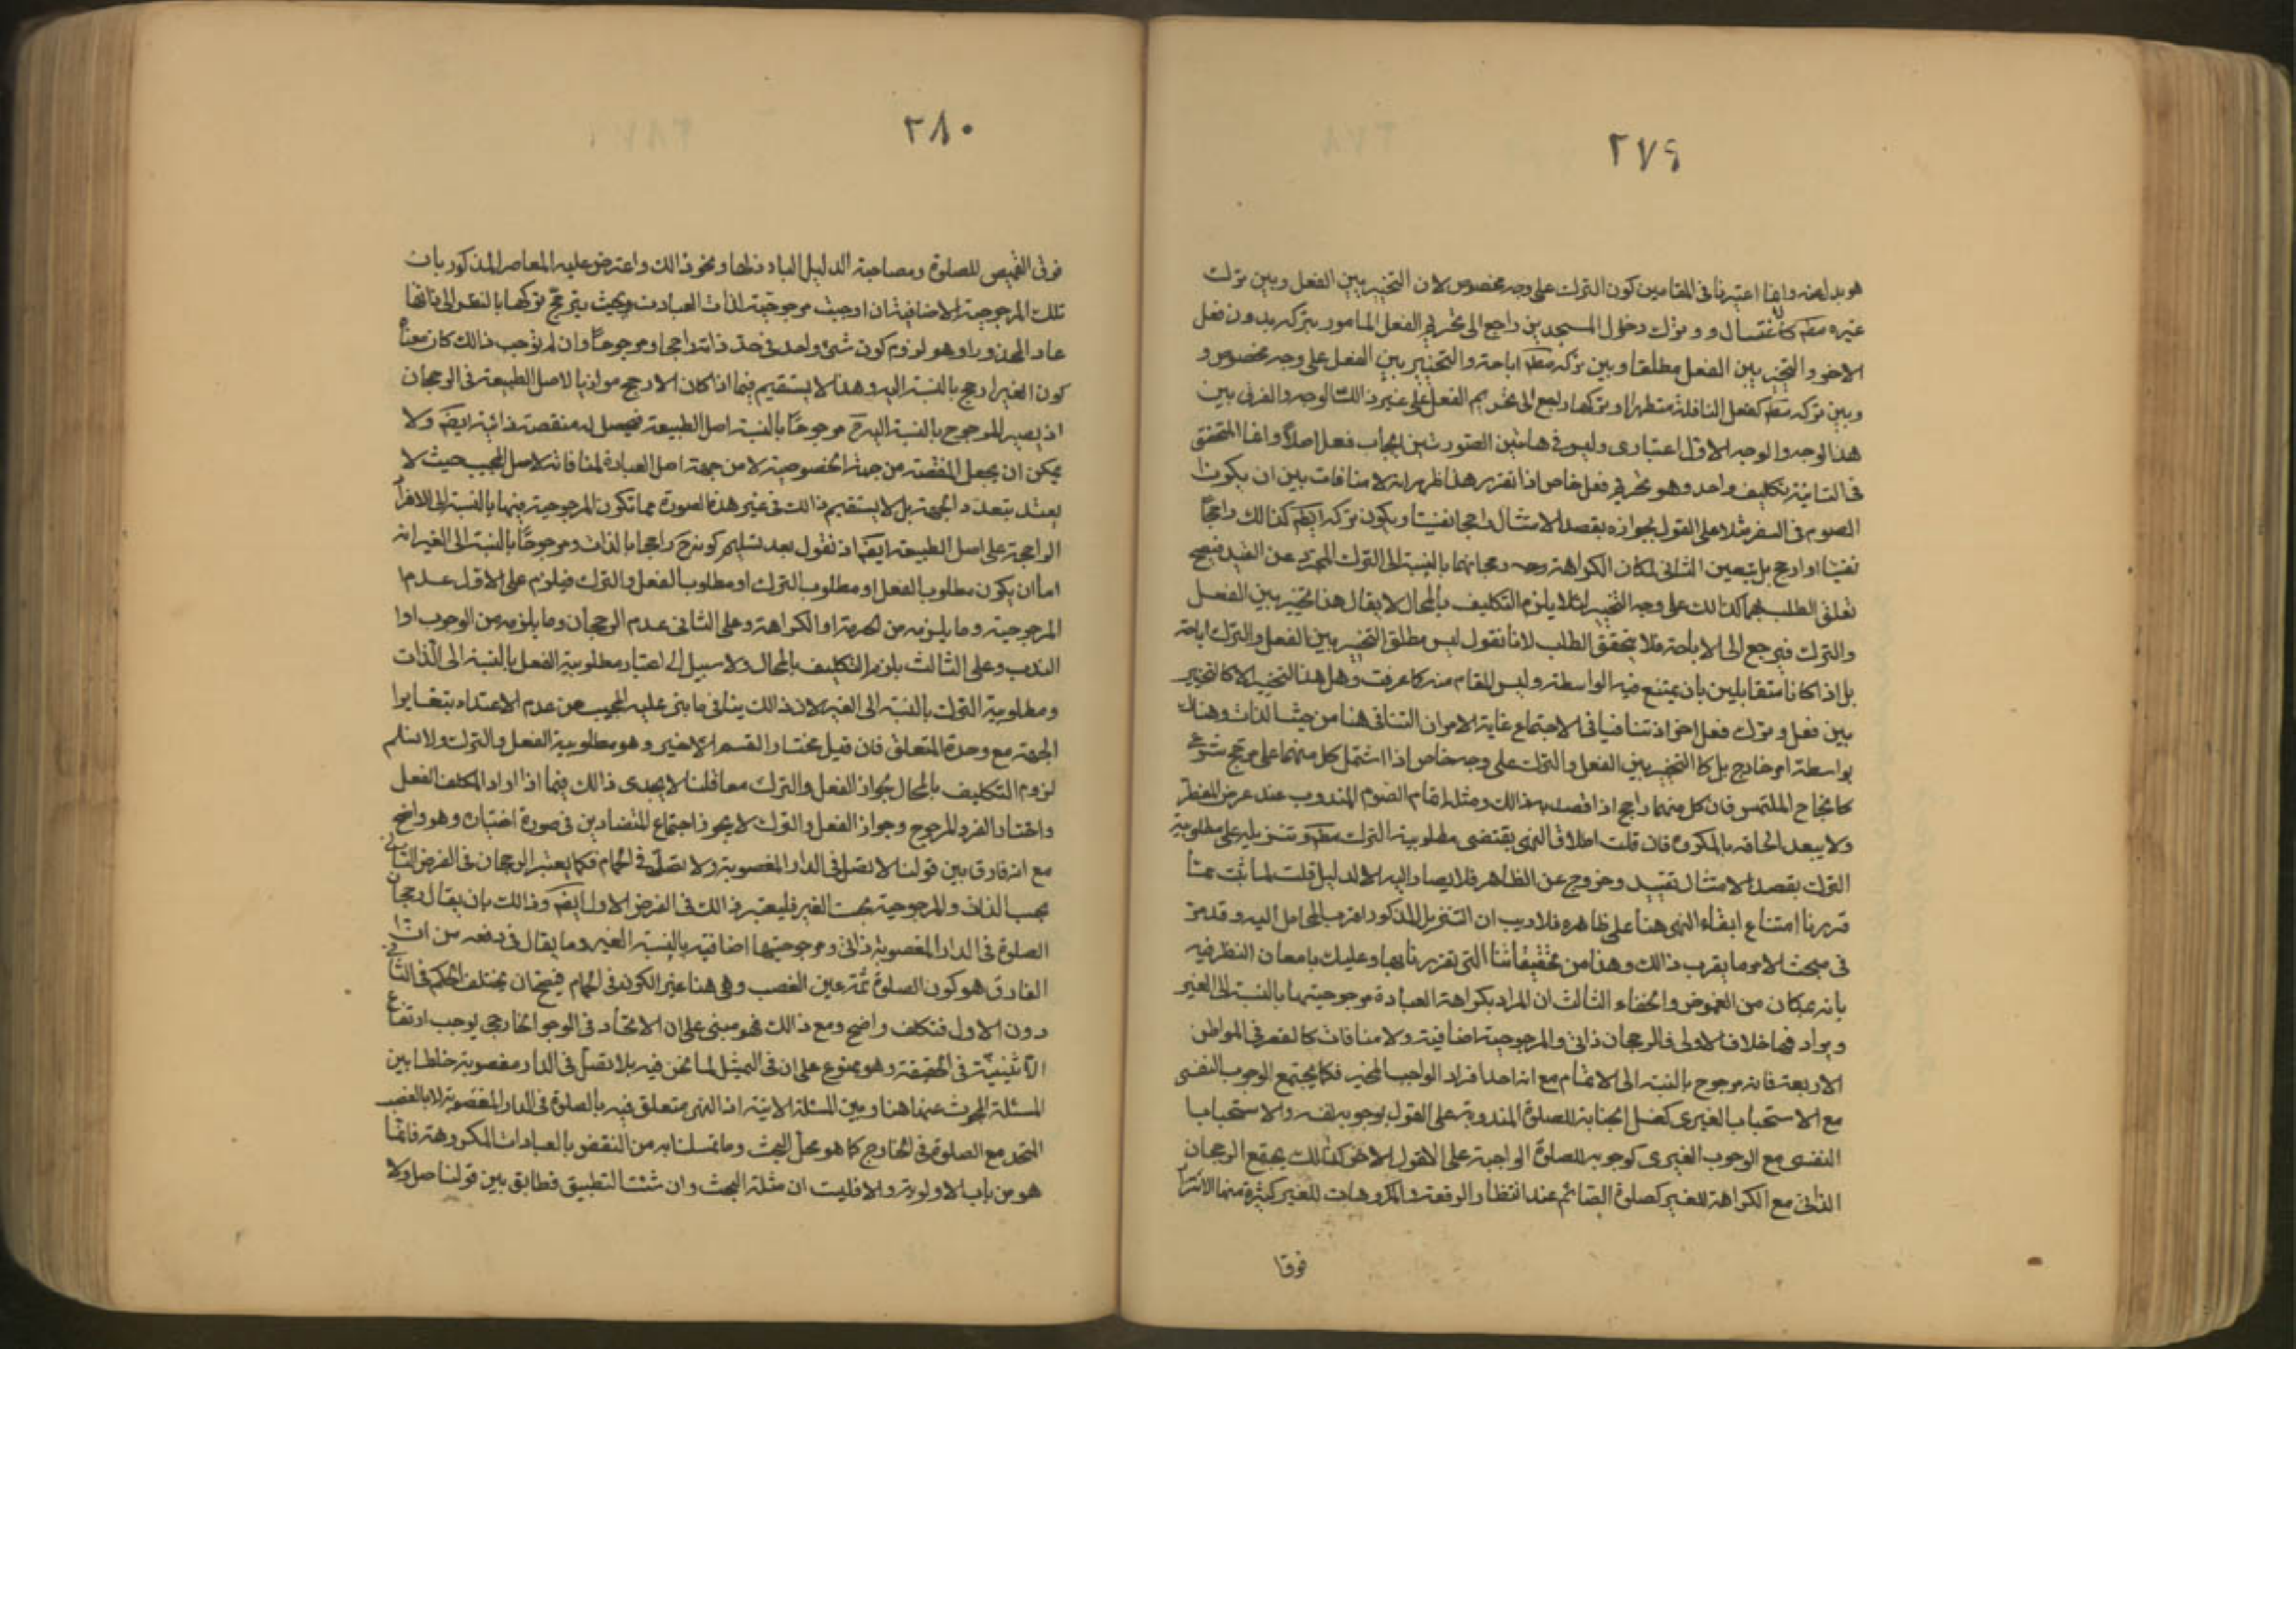 ٢٧٩
هو بدل عنه وانما اعتبرنا فى المقامين كون الترك على وجه مخصوص لان التخيير بين الفعل وبين ترك
غيره مط كالاغتسال و وترك دخول المسجدين راجع الى تحريم الفعل المامور بتركه بدون فعل
الاخر والتخيير بين الفعل مطلقا وبين تركه مط اباحة والتخيير بين الفعل على وجه مخصوص و
وبين تركه مط كفعل النافلة متطهرا وتركها راجع الى تحريم الفعل على غير ذالك الوجه والفرق بين
هذا الوجه والوجه الاول اعتبارى وليس فى هاتين الصورتين ايجاب فعل اصلا وانما المتحقق
فى الثانية تكليف واحد وهو تحريم فعل خاص اذا تقرر هذا ظهر انه لا منافات بين ان يكون
الصوم فى السفر مثلا على القول بجوازه بقصد الامتثال راجحا نفسيا ويكون تركه ايضا كذالك راجحا
نفسيا او ارجح بل يتعين الثانى لمكان الكراهة رجحانهما بالنسبة الى الترك المجرد عن القيد فيصح
تعلق الطلب بهما كذالك على وجه التخيير لئلا يلزم التكليف بالمحال لا يقال هذا تخيير بين الفعل
والترك فيرجع الى الاباحة فلا يتحقق الطلب لانا نقول ليس مطلق التخيير بين الفعل والترك اباحة
بل اذا كانا متقابلين بان يمتنع فيه الواسطة وليس المقام منه كما عرفت وهل هذا التخيير الا كالتخيير
بين فعل وترك فعل اخر اذ تنافيا فى الاجتماع غاية الامر ان التنافى هنا من حيث الذات وهناك
بواسطة امر خارج بل كالتخيير بين الفعل والترك على وجه خاص اذا اشتمل كل منهما على مرجح شرعى
كانجاح الملتمس فان كل منهما راجح اذا قصد به ذالك ومثله اتمام الصوم المندوب عند عرض الفطر
ولا يبعد الحاقه بالمكروه فان قلت اطلاق النهى يقتضى مطلوبية الترك مط وتنزيله على مطلوبية
الترك بقصد الامتثال تقييد وخروج عن الظاهر فلا يصار اليه الا لدليل قلت لما ثبت بما
قررنا امتناع ابقاء النهى هنا على ظاهره فلا ريب ان التنزيل المذكور اقرب المحامل اليه وقد مر
فى مبحث الامر ما يقرب ذالك وهذا من تحقيقاتنا التى تفردنا بها وعليك بامعان النظر فيه
بانه بمكان من الغموض والخفاء الثالث ان المراد بكراهة العبادة مرجوحيتها بالنسبة الى الغير
ويراد بها خلاف الاولى فالرجحان ذاتى والمرجوحية اضافية ولا منافات كالقصر فى المواطن
الاربعة فانه مرجوح بالنسبة الى الاتمام مع انه احد افراد الواجب المخير فكما يجتمع الوجوب النفسى
مع الاستحباب الغيرى كغسل الجنابة للصلوة المندوبة على القول بوجوبه لنفسه والاستحباب
النفسى مع الوجوب الغيرى كوجوبه للصلوة الواجبة على القول الاخر كذالك يجتمع الرجحان
الذاتى مع الكراهة للغير كصلوة الصائم عند انتظار الرفقة والمكروهات للغير كثيرة منها الاتزار
فوقا
٢٨٠
فوق القميص للصلوة ومصاحبة الدليل البادى لها ونحو ذالك واعترض عليه المعاصر المذكور بان
تلك المرجوحية الاضافية ان اوجبت مرجوحية لذات العبادت بحيث يترجح تركها بالنظر الى ذاتها
عاد المحذور او هو لزوم كون شئ واحد فى حد ذاته راجحا ومرجوحا وان لم توجب ذالك كان معناه
كون الغير ارجح بالنسبة اليه وهذا لا يستقيم فيما اذا كان الارجح موازيا لاصل الطبيعة فى الرجحان
اذ يصير المرجوح بالنسبة اليه مرجوحا بالنسبة اصل الطبيعة فيحصل له منقصة ذاتية ايضا ولا
يمكن ان يجعل المنقصة من جهة الخصوصية لا من جهة اصل العبادة لمنافاته لاصل المجيب حيث لا
يعتد بتعدد الجهة بل لا يستقيم ذالك فى غير هذه الصورة مما تكون المرجوحية فيها بالنسبة الى الافراد
الراجحة على اصل الطبيعة ايضا اذ نقول بعد تسليم كونه راجحا بالذات ومرجوحا بالنسبة الى الغير انه
اما ان يكون مطلوب الفعل او مطلوب الترك او مطلوب الفعل والترك فيلزم على الاول عدم
المرجوحية وما يلزمه من الحرمة او الكراهة وعلى الثانى عدم الرجحان وما يلزمه من الوجوب او
الندب وعلى الثالث يلزم التكليف بالمحال ولا سبيل الى اعتبار مطلوبية الفعل بالنسبة الى الذات
ومطلوبية الترك بالنسبة الى الغير لان ذالك ينافى ما بنى عليه المجيب من عدم الاعتداد بتغاير
الجهة مع وحدة المتعلق فان قيل نختار القسم الاخير وهو مطلوبية الفعل والترك ولا نسلم
لزوم التكليف بالمحال لجواز الفعل والترك معا قلنا لا يجدى ذالك فيما اذا اراد المكلف الفعل
واختار الفرد المرجوح وجواز الفعل والترك لا يجوز اجتماع المتضادين فى صورة اختياره وهو واضح
مع انه فارق بين قولنا لا تصل فى الدار المغصوبة ولا تصل فى الحمام فكما يعتبر الرجحان فى الفرض الثانى
بحسب الذات والمرجوحية بحسب الغير فليعتبر ذالك فى الفرض الاول ايضا وذالك بان يقال رجحان
الصلوة فى الدار المغصوبة ذاتى ومرجوحيتها اضافية بالنسبة الغير وما يقال فى دفعه من ان
الفارق هو كون الصلوة ثمة عين الغصب وهى هنا غير الكون فى الحمام فيصح ان يختلف الحكم فى الثانى
دون الاول فتكلف واضح ومع ذالك فهو مبنى على ان الاتحاد فى الوجود الخارجى يوجب ارتفاع
الاثنينية فى الحقيقة وهو ممنوع على ان فى التمثيل لما نحن فيه بلا تصل فى الدار مغصوبة خلطا بين
المسئلة المبحوث عنها هنا وبين المسئلة الاتية اذ النهى متعلق فيه بالصلوة فى الدار المغصوبة لا بالغصب
المتحد مع الصلوة فى الخارج كما هو محل البحث وما تمسك به من النقض بالعبادات المكروهة فانما
هو من باب الاولوية والا فليست ان مثلة البحث وان شئت التطبيق فطابق بين قولنا صل ولا